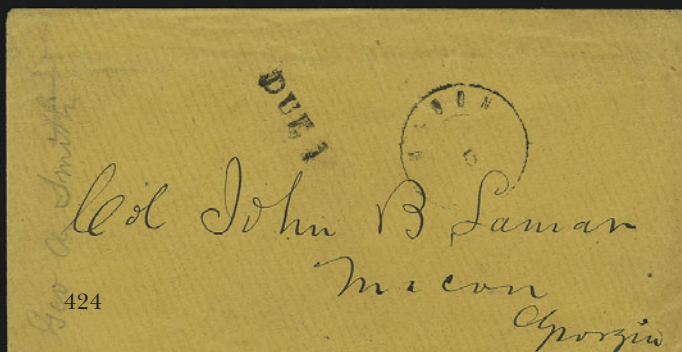 DUE 1
MACON
6
Col John B Lamar
Macon
Georgia
Geo A Smith
424